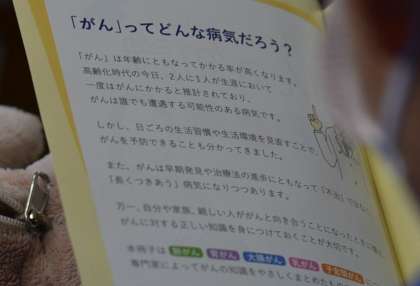 「がん」ってどんな病気だろう？
「がん」は年齢にともなってかかる率が高くなります。
高齢化時代の今日、2人に1人が生涯において
一度はがんにかかると推計されており、
がんは誰でも遭遇する可能性のある病気です。
しかし、日ごろの生活習慣や生活環境を見直すことで、
がんを予防できることも分かってきました。
また、がんは早期発見や治療法の進歩にともなって「不治」ではなく、
「長くつきあう」病気になりつつあります。
万一、自分や家族、親しい人ががんと向き合うことになったときに
がんに対する正しい知識を身につけておくことが大切です。
本冊子は 肺がん 胃がん 大腸がん 乳がん 子宮頸がん
専門家によってがんの知識をやさしくまとめた